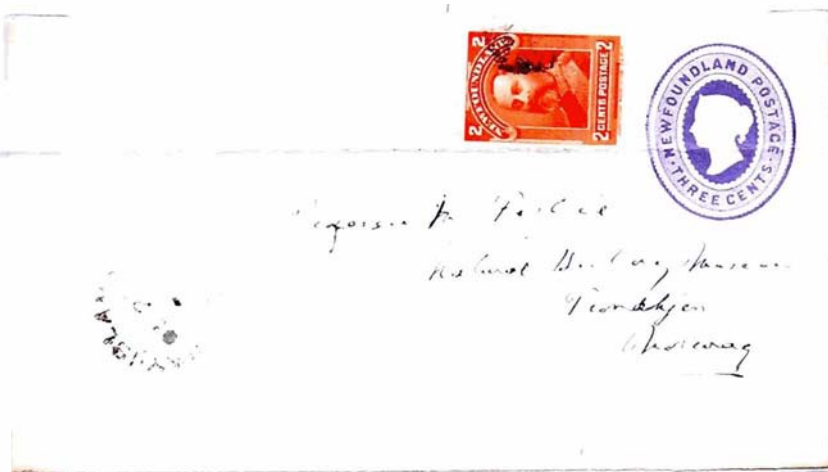 2 NEWFOUNDLAND 2
2 CENTS POSTAGE 2
NEWFOUNDLAND POSTAGE
THREE CENTS
Professor
Natural History Museum
Trondhjem
Norway